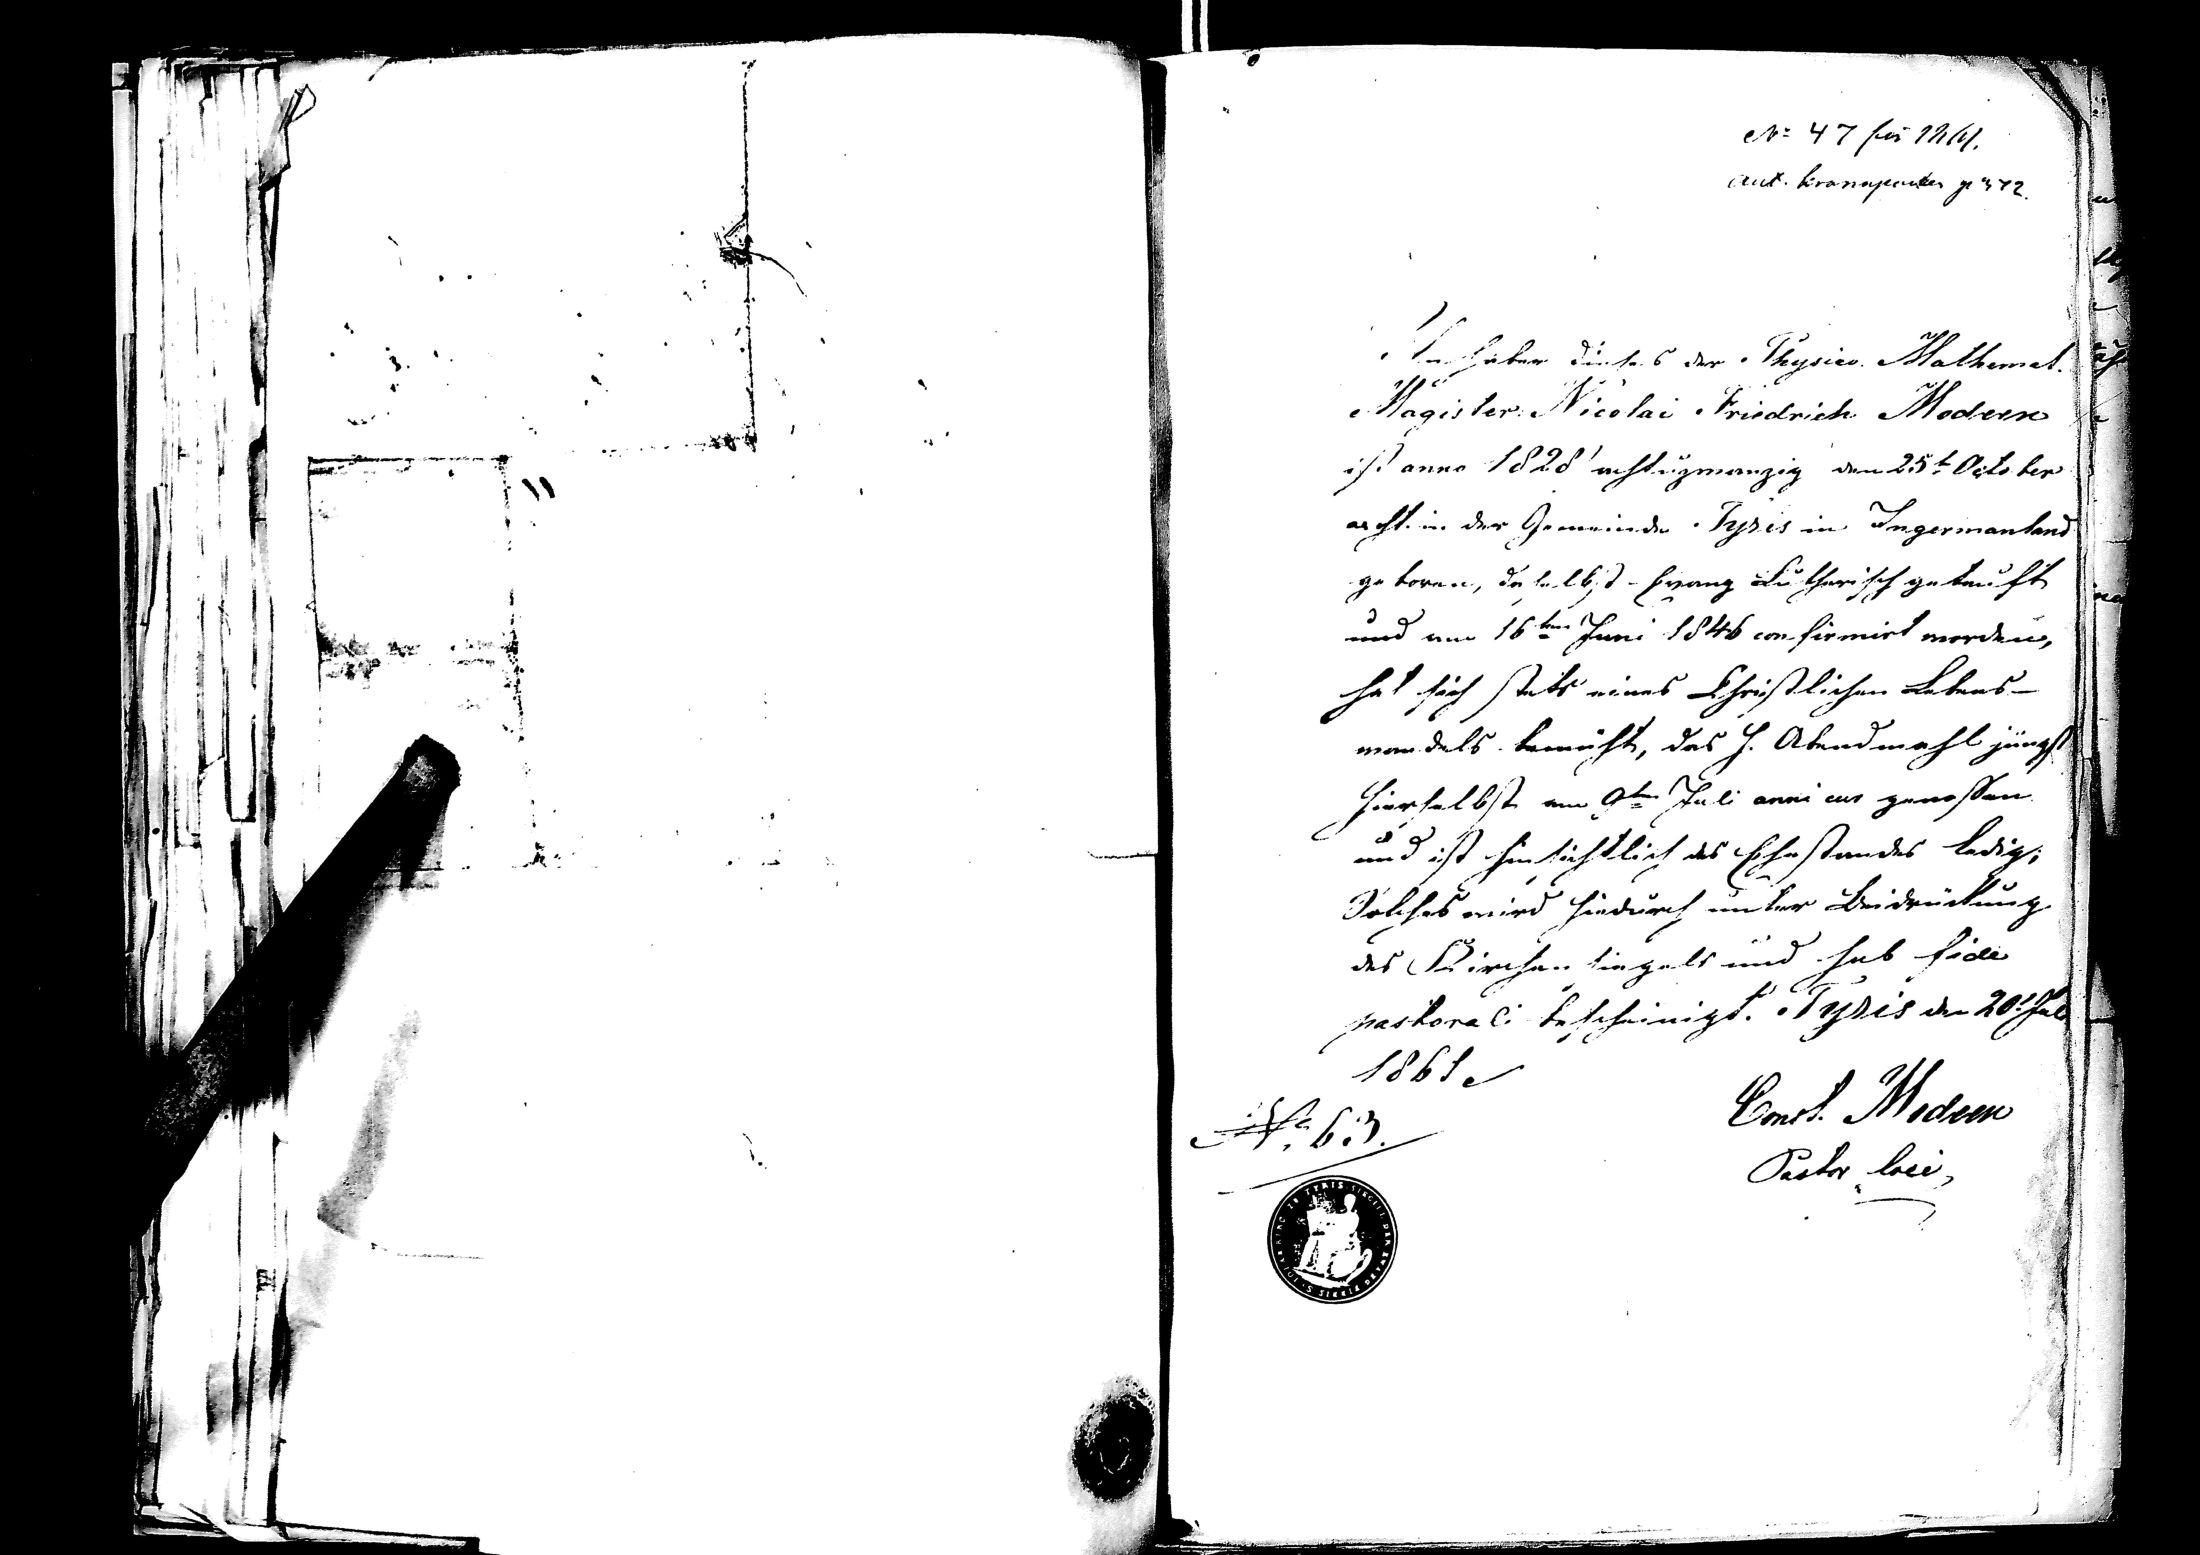 No 47 för 1861.
Inhaber dieses der Physico. Mathemat.
Magister Nicolai Friedrich Modeen
ist anno 1828 achtuzwanzig den 25t October
acht. in der Gemeinde Tyris in Ingermanland
geboren, daselbst Evang Lutherisch getauft
und am 16ten Juni 1846 confirmirt worden,
hat sich stets eines Christlichen Lebens-
wandels bemüht, das H. Abendmahl jüngst
hierselbst am 9ten Juli anni cur genossen
und ist hinsichtlich des Ehestandes ledig;
Solches wird hiedurch unter Beidrückung
des Kirchensiegels und sub fide
pastorali bescheinigt. Tyris den 20t Jul
1861
No 63.
Const. Modeen
Pastor loci,